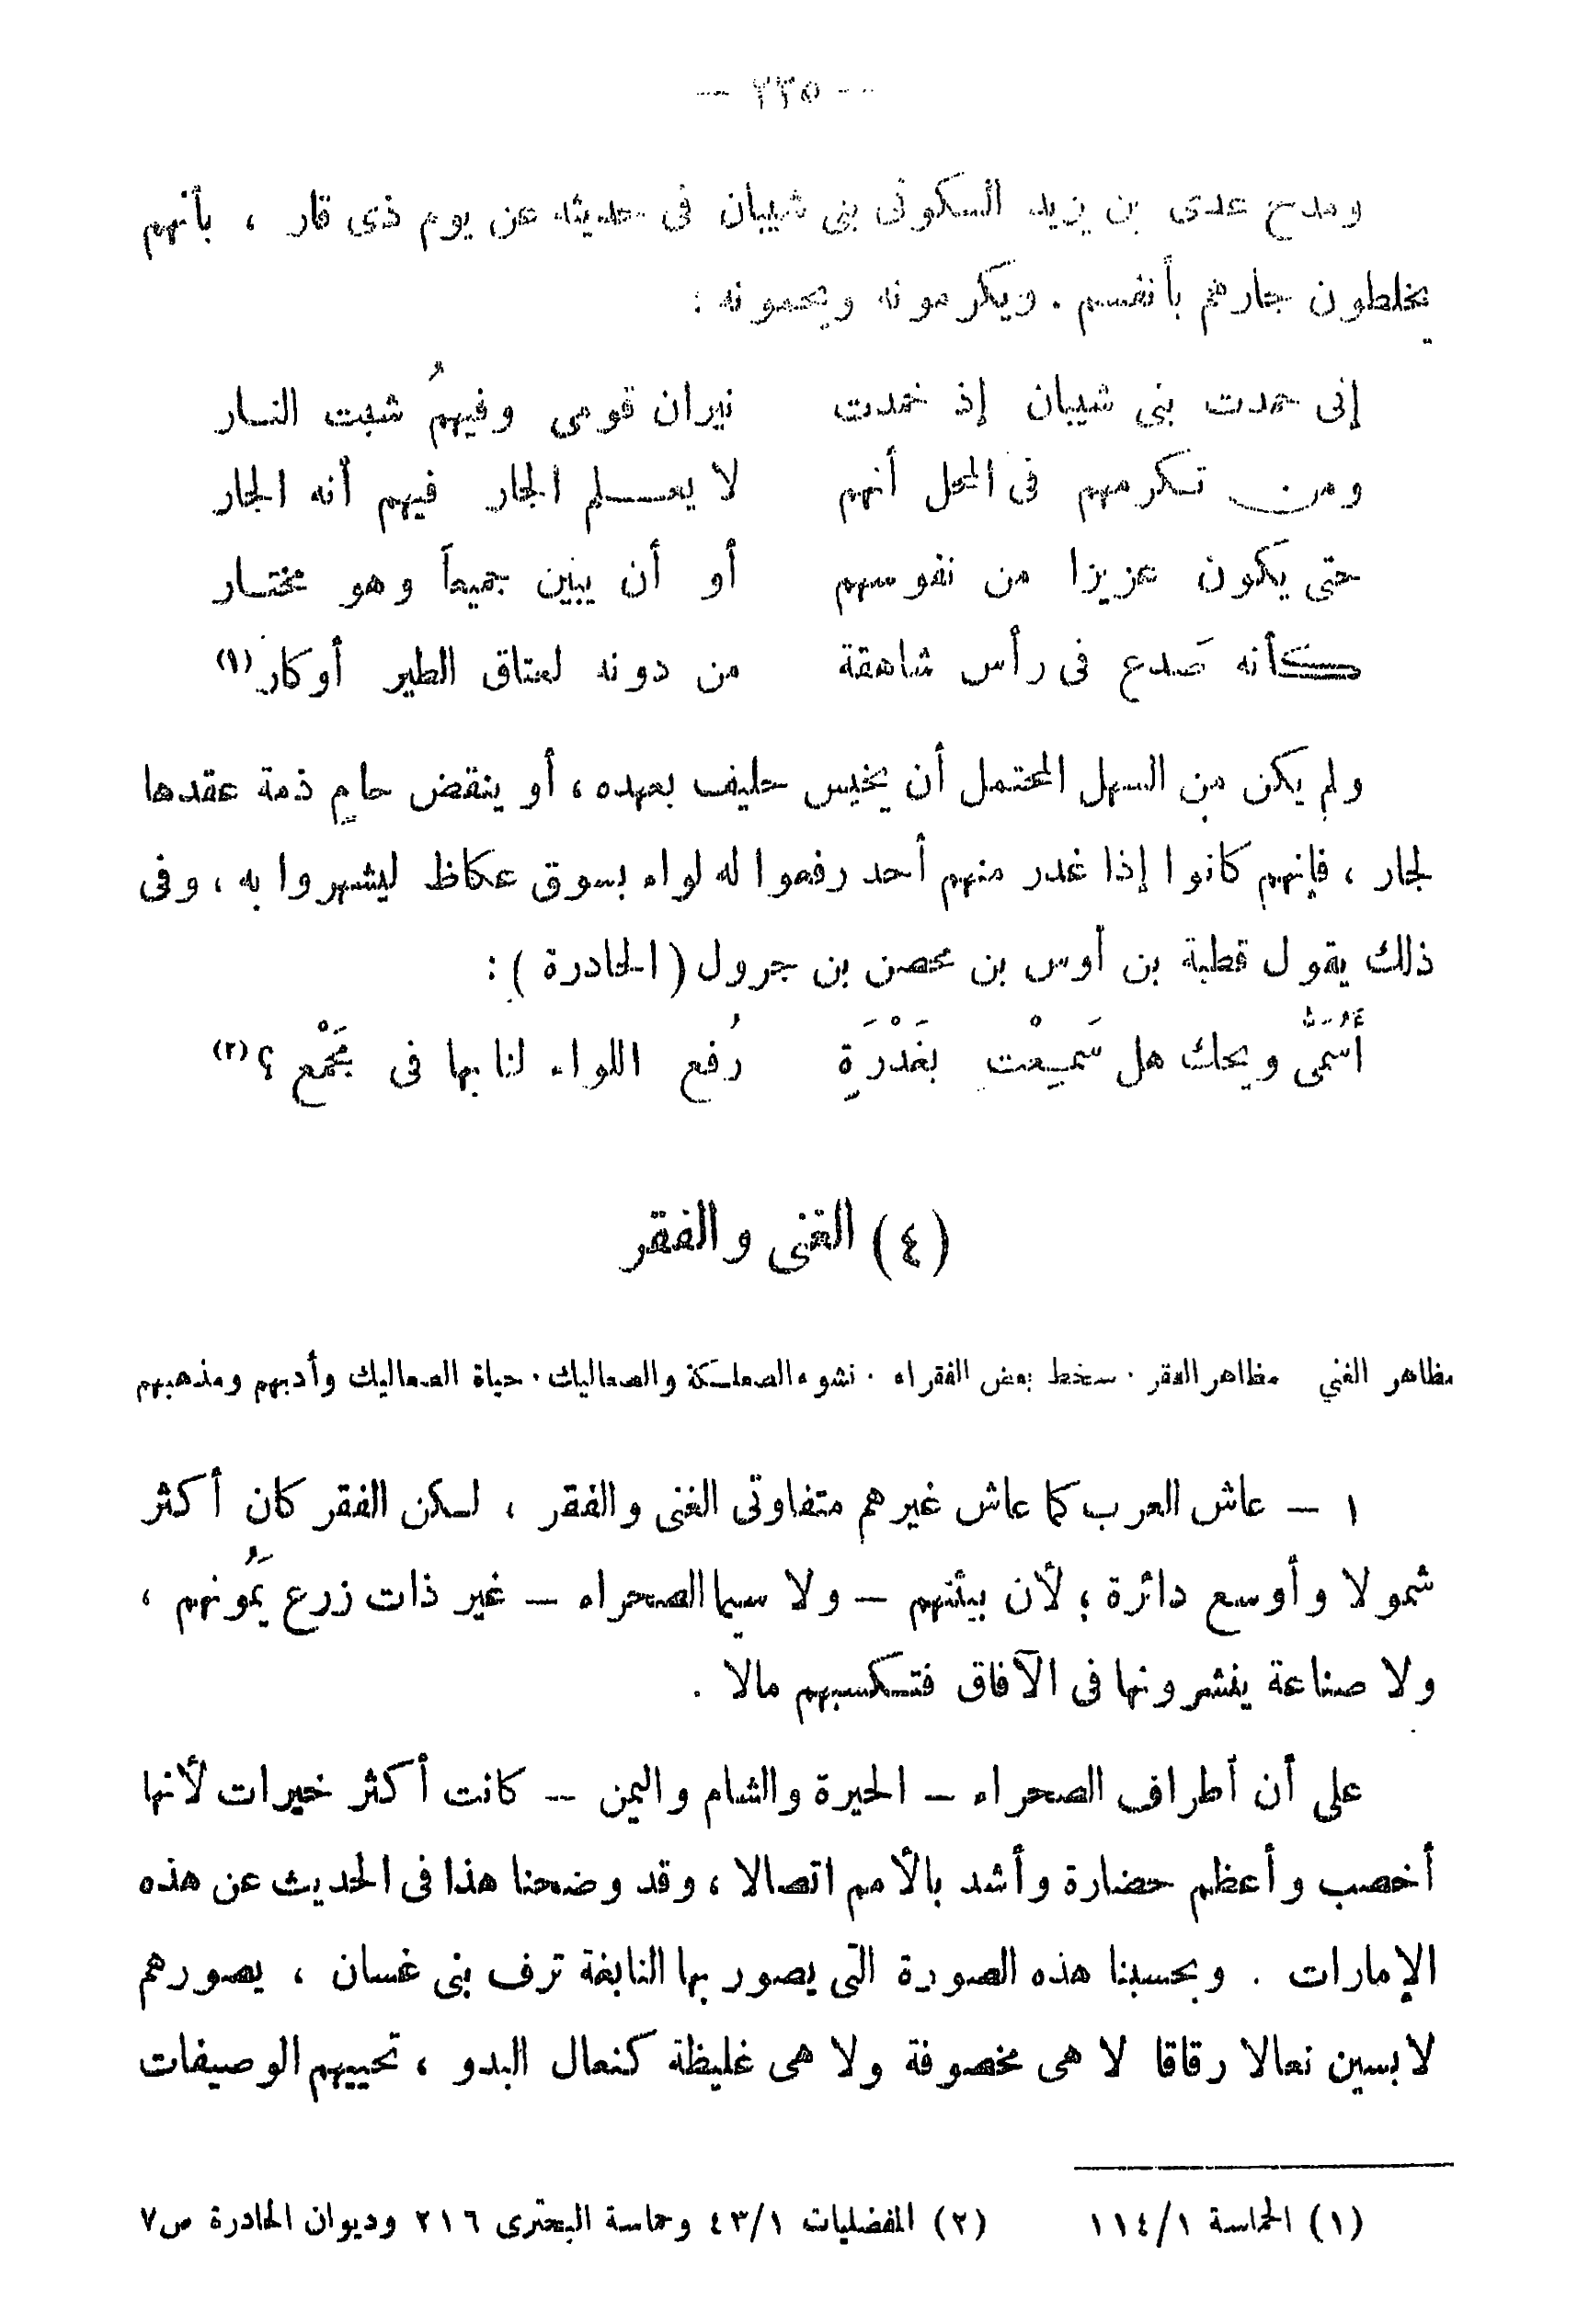 — ٢٣٥ —
ومدح عدى بن يزيد السكونى بنى شيبان فى حديثه عن يوم ذى قار ، بأنهم
يخلطون جارهم بأنفسهم . ويكرمونه ويحمونه :
إنى حمدت بنى شيبان إذ خمدت نيران قومى وفيهمُ شبت النار
ومن تكرمهم فى المحل أنهم لا يعلم الجار فيهم أنه الجار
حتى يكون عزيزا من نفوسهم أو أن يبين جميعاً وهو مختار
كأنه صَدع فى رأس شاهقة من دونه لعتاق الطير أوكار (١)
ولم يكن من السهل المحتمل أن يخيس حليف بعهده ، أو ينقض حامٍ ذمة عقدها
لجار ، فإنهم كانوا إذا غدر منهم أحد رفعوا له لواء بسوق عكاظ ليشهروا به ، وفى
ذلك يقول قطبة بن أوس بن محصن بن جرول (الحادرة) :
أَسُمَىَّ ويحك هل سَمِعْتِ بغَدْرَةٍ رُفع اللواء لنا بها فى مَجْمع ؟ (٢)
(٤) الغنى والفقر
مظاهر الغني مظاهر الفقر . سخط بعض الفقراء . نشوء الصعلكة والصعاليك . حياة الصعاليك وأدبهم ومذهبهم
١ — عاش العرب كما عاش غيرهم متفاوتى الغنى والفقر ، لكن الفقر كان أكثر
شمولا وأوسع دائرة ؛ لأن بيئتهم — ولا سيما الصحراء — غير ذات زرع يَمُونهم ،
ولا صناعة ينشرونها فى الآفاق فتكسبهم مالا .
على أن أطراف الصحراء — الحيرة والشام واليمن — كانت أكثر خيرات لأنها
أخصب وأعظم حضارة وأشد بالأمم اتصالا ، وقد وضحنا هذا فى الحديث عن هذه
الإمارات . وبحسبنا هذه الصورة التى يصور بها النابغة ترف بنى غسان ، يصورهم
لابسين نعالا رقاقا لا هى مخصوفة ولا هى غليظة كنعال البدو ، تحييهم الوصيفات
(١) الحماسة ١/١١٤ (٢) المفضليات ١/٤٣ وحماسة البحترى ٢١٦ وديوان الحادرة ص٧